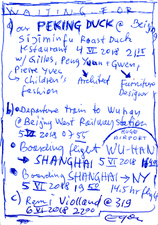 WAITING FOR
a) our PEKING DUCK @ Beijing
sijiminfu Roast Duck
Restaurant 4 VI 2018 21 15
w/ Gilles, Peng Yuan + Gwen,
Pierre Yves
Children's Architect Furniture
fashion Designer
b) Departure train to Wuhan
@ Beijing West Railway station
5 VI 2018 07 55
HUGE
AIRPORT
Boarding flight WU-HAN
→ SHANGHAI 5 VI 2018
Boarding SHANGHAI → NY
5 VI 2018 19 50 flight
c) Remi Violland @ 319
6 VI 2018 22 00